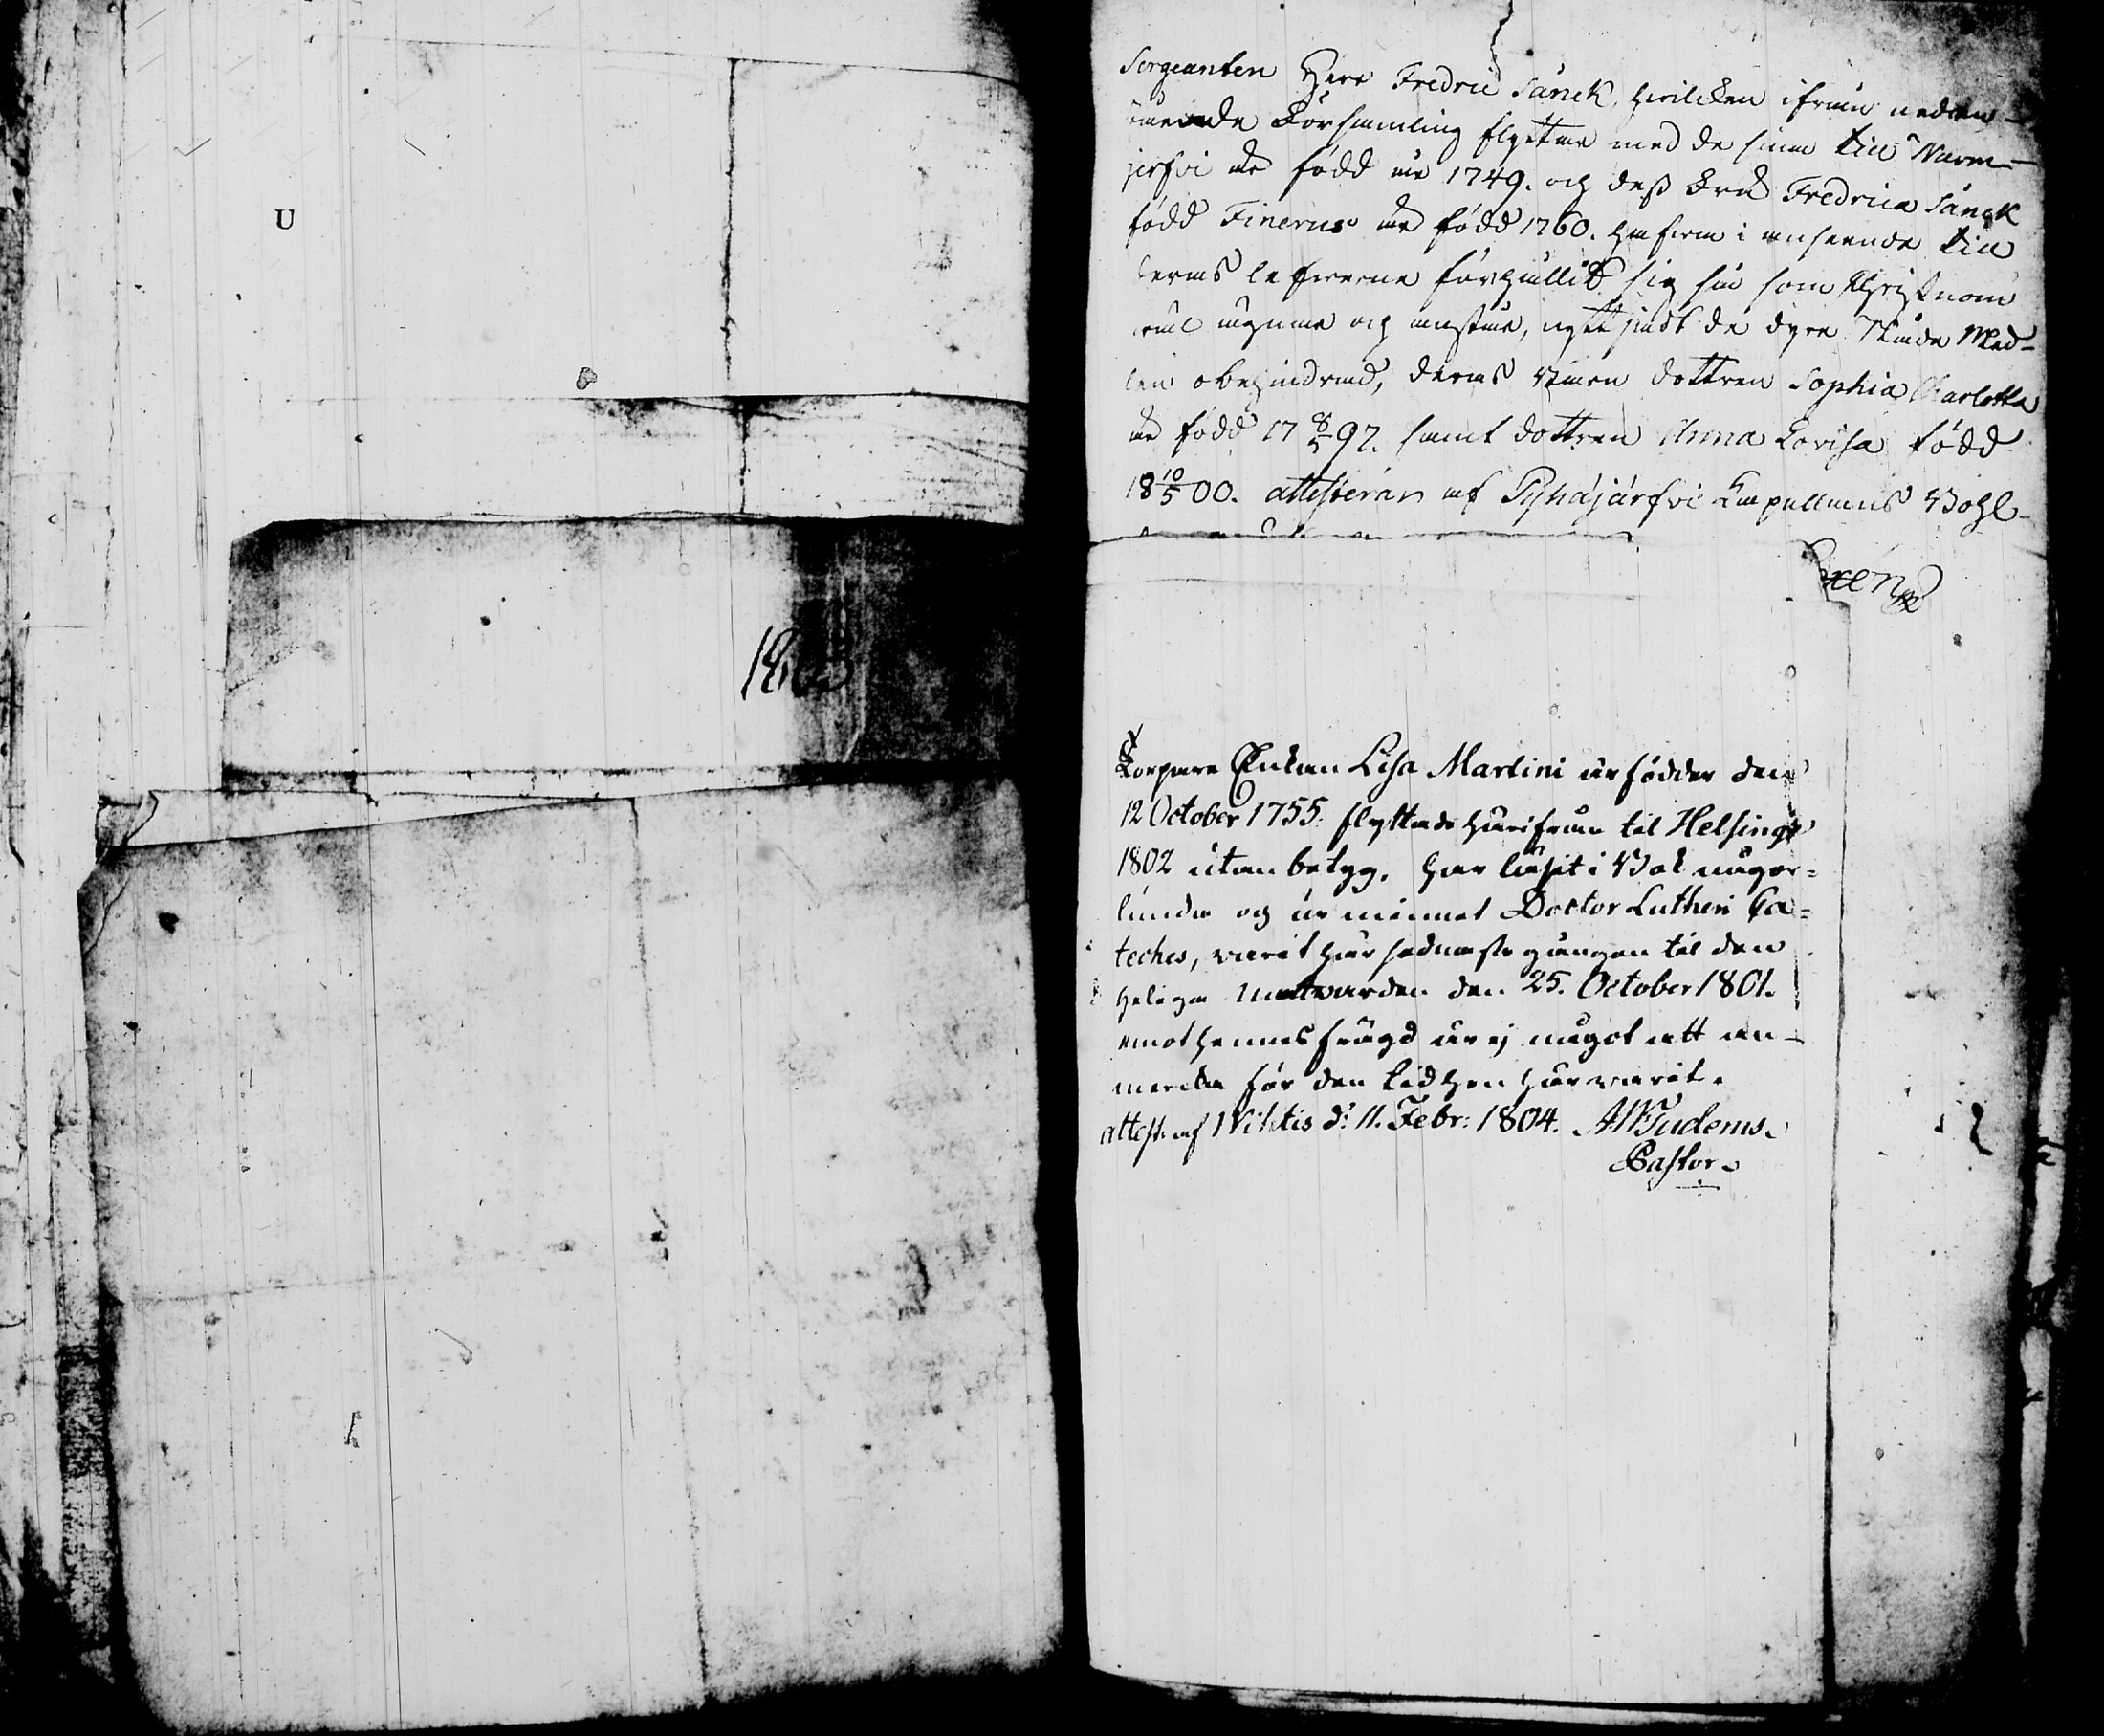 U
Sergeanten Herr Fredric Sånck, hvilcken ifrån nedan-
Församling flyttar med de sina till Nurm-
jerfvi är född år 1749. och dess Fru Fredrica Sånck
född Finerus är född 1760. hafva i anseende till
deras lefverne förhållit sig så som Christnom
väl ägnar och anstår, nyttjadt de dyra Nåde Med-
len obehindrad, deras dottren Sophia Charlotta
är född 17 97. samt dottren Anna Lovisa född
18 10/5 00. attesterar af Pyhäjärfvi Capellans Bohl
1803
Enkan Lisa Martini är födder den
12 October 1755. flyttade härifrån til Helsinge
1802 utan betyg. har läsit i Bok någor=
lunda og ur minnet Doctor Lutheri Ca=
teches, varit här sednaste gången til den
Heliga Nattvarden den 25. October 1801.
emot hennes frägd är ej något att an-
mercka för den tid hon här varit.
attest. af Wihtis d: 11. Febr: 1804.
Pastor.